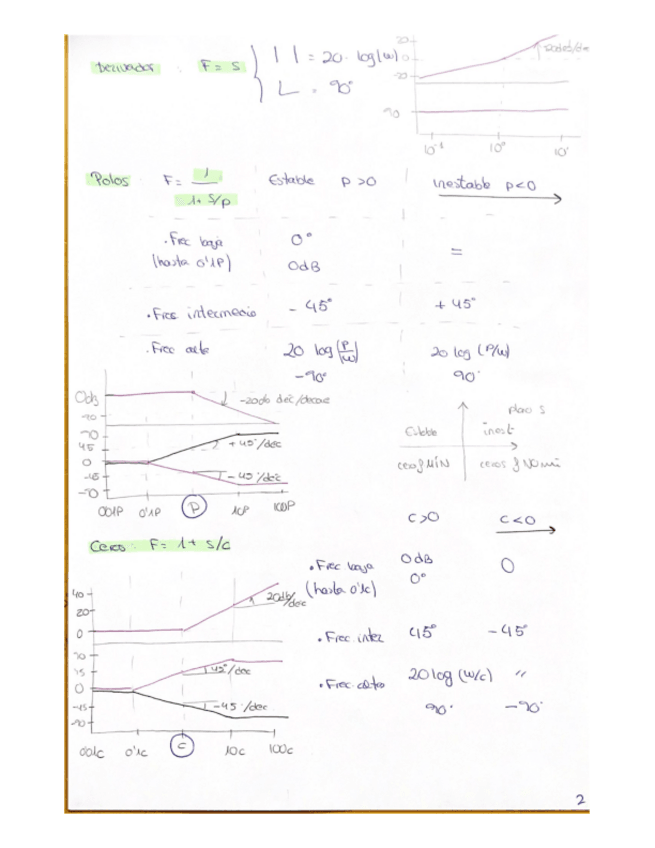 Derivador : F = s { | | = 20 · log(w)
∟ = 90°
20
0
-20
20db/dec
90
10⁻¹ 10⁰ 10¹
Polos F = 1 / 1 + s/p Estable p >0 inestable p<0
· Frec baja 0° =
(hasta 0'1P) 0dB
· Frec intermedia - 45° + 45°
· Frec alta 20 log (P/w) 20 log (P/w)
-90° 90°
0db
-20db dec/decada
90
45
0
-45
-90
+45°/dec
-45°/dec
001P 0'1P P 10P 100P
plano s
Estable inest
ceros f MIN ceros f NO min
c>0 c<0
Ceros : F = 1 + s/c
· Frec baja 0dB 0
(hasta 0'1c) 0°
· Frec inter 45° -45°
· Frec alta 20 log (w/c) "
90° -90°
40
20
0
20db/dec
90
45
0
-45
-90
45°/dec
-45°/dec
001c 0'1c c 10c 100c
2